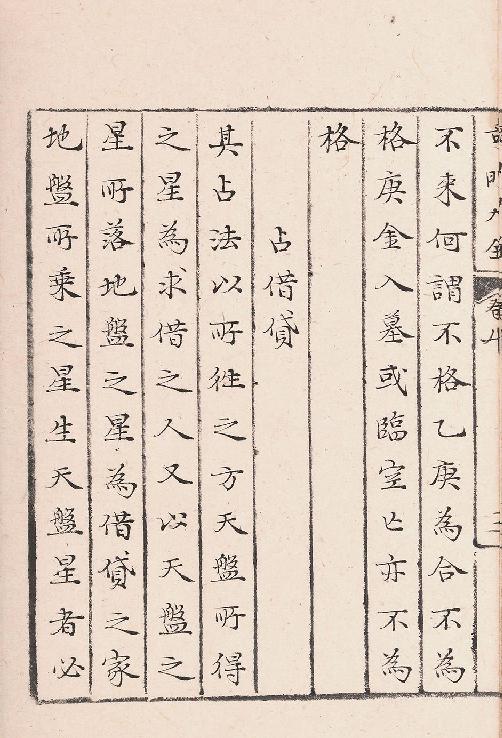 不来何謂不格乙庚為合不為
格庚金入墓或臨空亡亦不為
格
占借貸
其占法以所徃之方天盤所得
之星為求借之人又以天盤之
星所落地盤之星為借貸之家
地盤所乘之星生天盤星者必